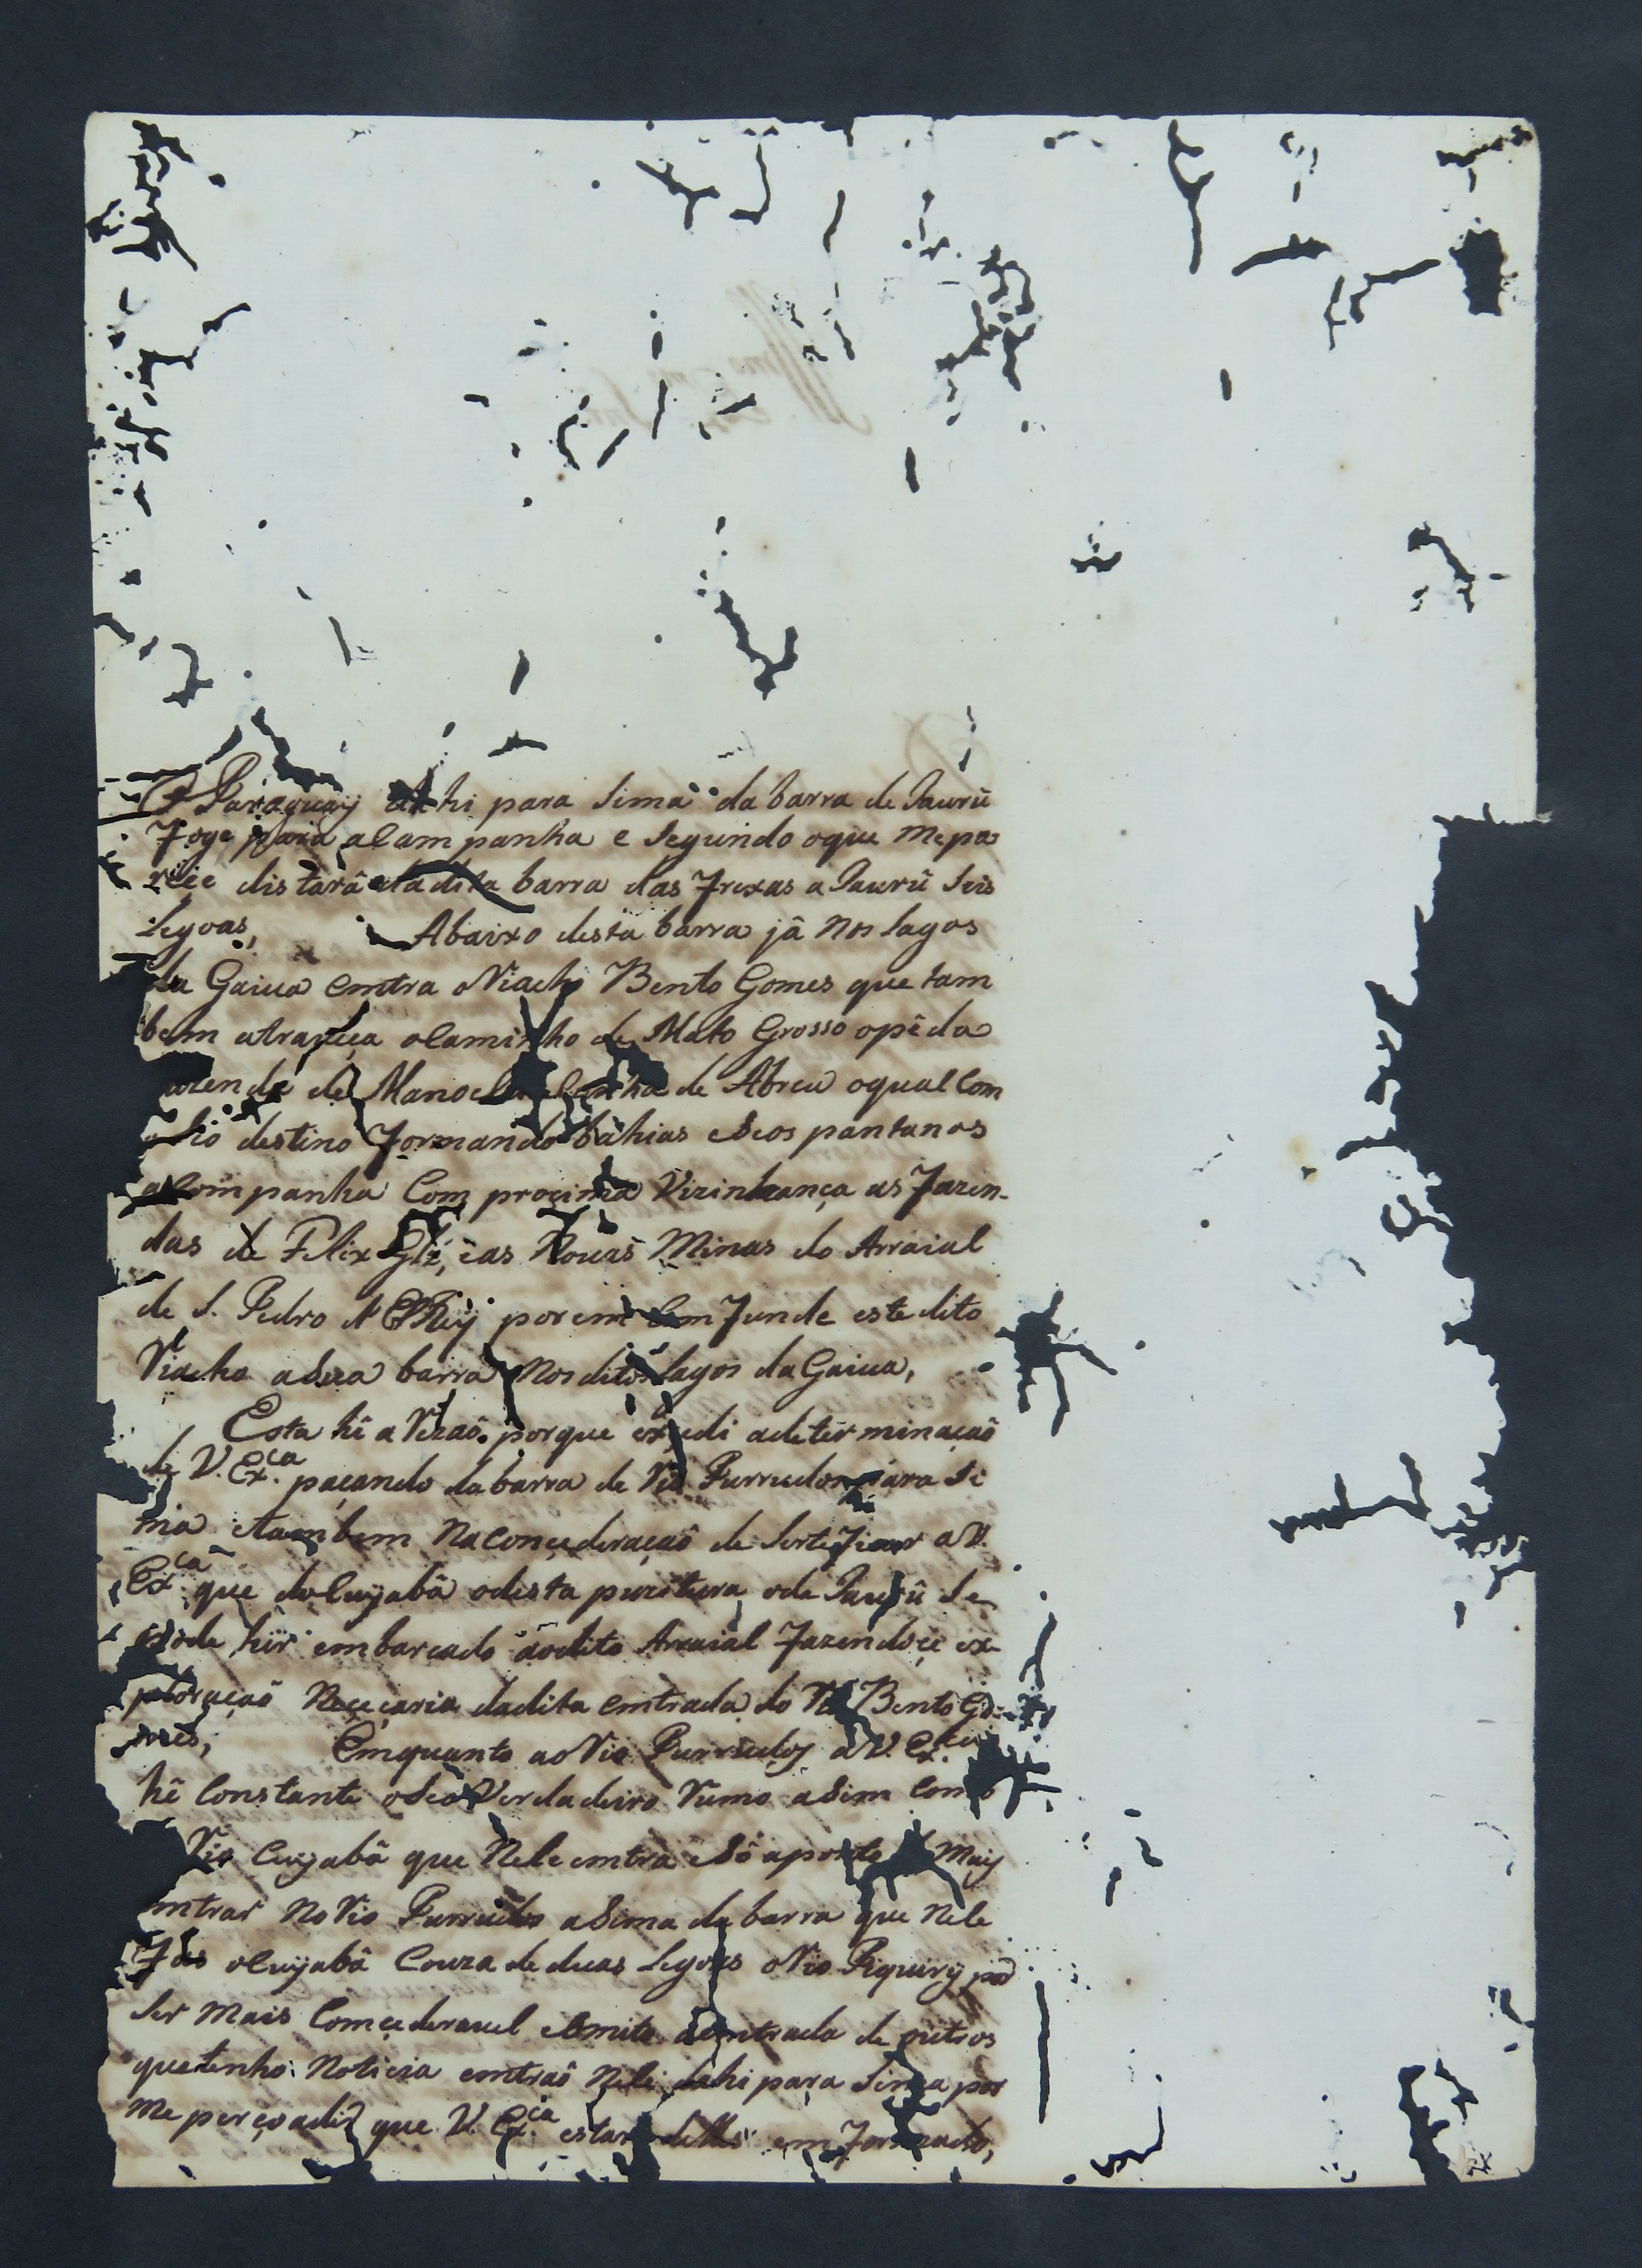 O Paraguay dahi para sima da barra de Jaurû
foge para a Campanha e segundo o que me pa
reçe distarâ da dita barra das frexas a Jaurû seis
Legoas, Abaixo desta barra jâ nos Lagos
da Gaiva emtra o Riacho Bento Gomes que tam
bem atraveça o Caminho de Mato Grosso o pê da
fazenda de Manoel da Cunha de Abreu o qual Com
destino formando bahias e seos pantanos
acompanha Com proçima Vizinhança as fazen-
das de Felix Glz, e as Novas Minas do Arraial
de S. Pedro d'ElRey porem Comfunde este dito
Riacho a sua barra nos ditos Lagos da Gaiva,
Esta hê a Rezaô porque exçedi a determinaçaô
de V. Ex.ca paçando da barra de Rio Purrudos para si
ma e tambem na conçederaçaô de sertificar a V.
Ex.ca que do Cuyabâ o desta o de Jaurû se
pode hir embarcado ao dito Arraial fazendoçe ex-
ploraçaô neçeçaria da dita emtrada do Rio Bento Go-
mes, Emquanto ao Rio Purrudos a V. Ex.cia
hê Constante o seo Verdadeiro Rumo asim Como
Rio Cuyabâ que nele emtra e sô aponto Mais
emtrar no Rio Purrudos asima da barra que nele
faz o Cuyabâ Couza de duas Legoas o Rio Piquiry por
ser mais Comçederavel e Omito a emtrada de outros
que tenho noticia emtraô nele dahi para sima por
me perçoadir que V. Ex.cia estarâ delles emformado,